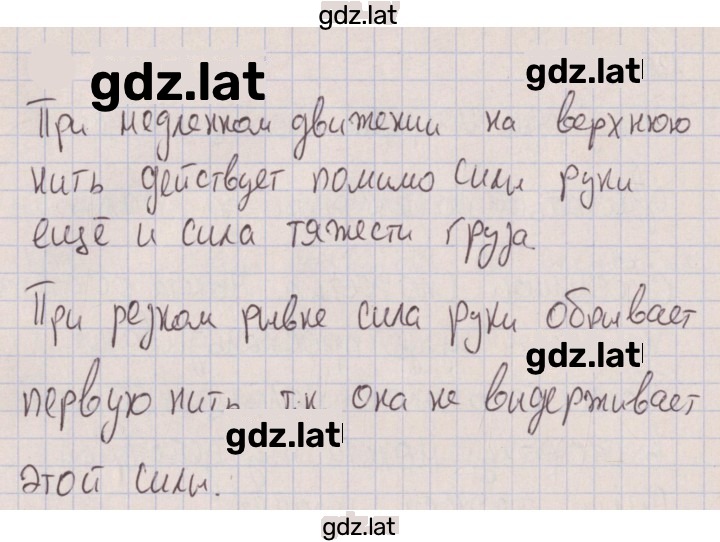 gdz.lat
gdz.lat
gdz.lat
При медленном движении на верхнюю
нить действует помимо силы руки
ещё и сила тяжести груза.
При резком рывке сила руки обрывает
gdz.lat
первую нить т.к она не выдерживает
gdz.lat
этой силы.
gdz.lat